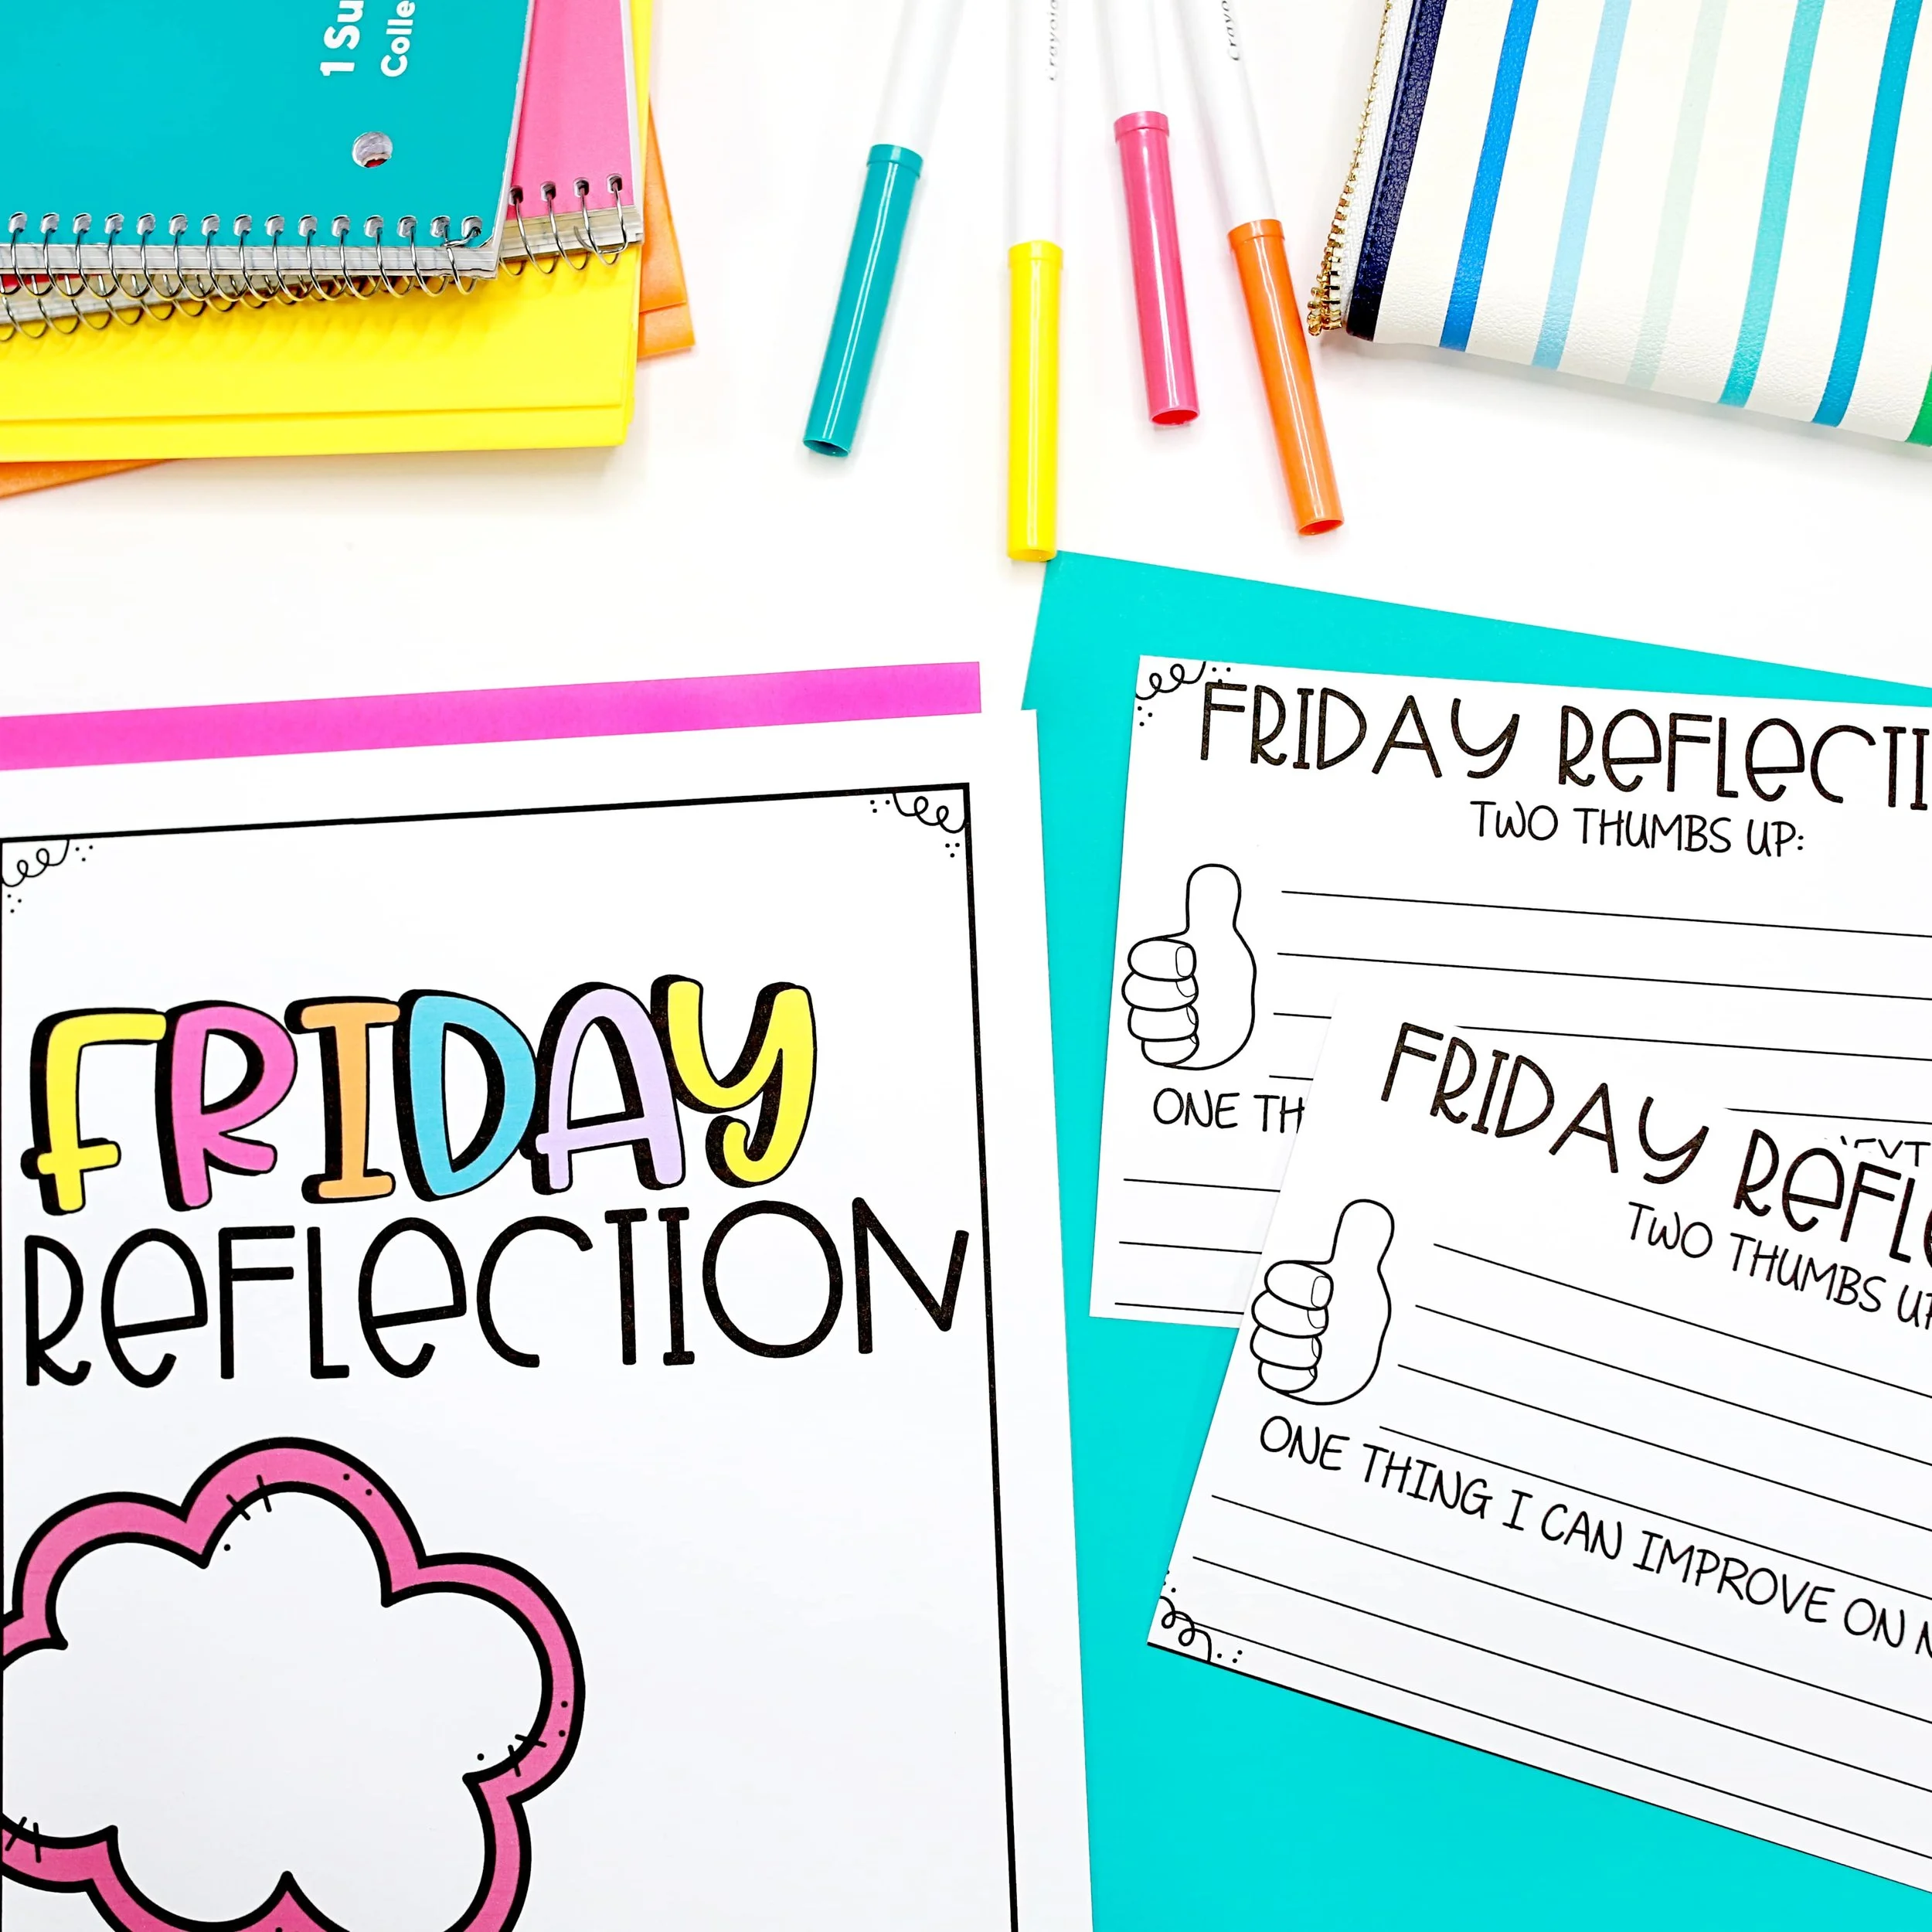 1 Su
Colle
Crayola
Crayo
FRIDAY
REFLECTION
FRIDAY REFLECTI
TWO THUMBS UP:
ONE TH
FRIDAY REFLE
TWO THUMBS UP
ONE THING I CAN IMPROVE ON N